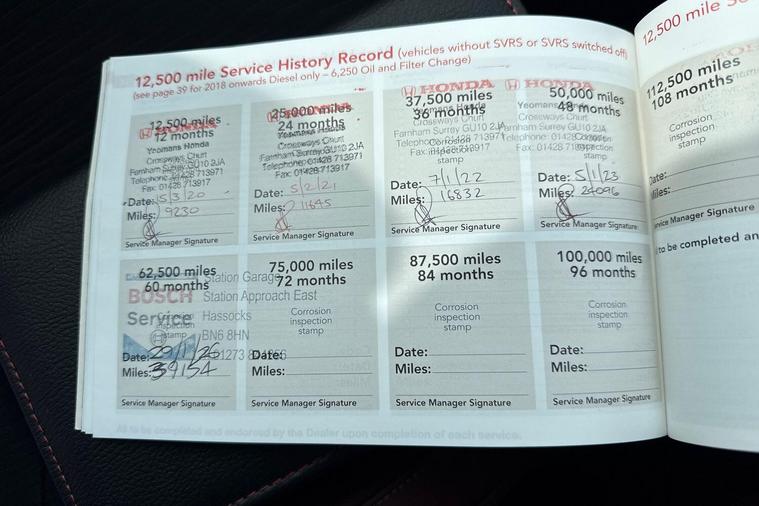 12,500 mile Service History Record (vehicles without SVRS or SVRS switched off)
(see page 39 for 2018 onwards Diesel only – 6,250 Oil and Filter Change)
12,500 miles
12 months
HONDA
Yeomans Honda
Crossways Churt
Farnham Surrey GU10 2JA
Telephone: 01428 713971
Fax: 01428 713917
Date: 15/3/20
Miles: 9230
Service Manager Signature
25,000 miles
24 months
HONDA
Yeomans Honda
Crossways Churt
Farnham Surrey GU10 2JA
Telephone: 01428 713971
Fax: 01428 713917
Date: 5/2/21
Miles: 11645
Service Manager Signature
HONDA
37,500 miles
36 months
Yeomans Honda
Crossways Churt
Farnham Surrey GU10 2JA
Telephone: 01428 713971
Corrosion
inspection
stamp
Date: 7/1/22
Miles: 16832
Service Manager Signature
HONDA
50,000 miles
48 months
Yeomans Honda
Crossways Churt
Farnham Surrey GU10 2JA
Telephone: 01428
Corrosion
inspection
stamp
Fax: 01428 713917
Date: 5/1/23
Miles: 24096
Service Manager Signature
62,500 miles
60 months
BOSCH
Service
Station Garage
Station Approach East
Hassocks
BN6 8HN
Corrosion
inspection
stamp
Date: 29/1/26
Miles: 39154
Service Manager Signature
75,000 miles
72 months
Corrosion
inspection
stamp
Date:
Miles:
Service Manager Signature
87,500 miles
84 months
Corrosion
inspection
stamp
Date:
Miles:
Service Manager Signature
100,000 miles
96 months
Corrosion
inspection
stamp
Date:
Miles:
Service Manager Signature
All to be completed and endorsed by the Dealer upon completion of each service.
12,500 mile
112,500 miles
108 months
Corrosion
inspection
stamp
Date:
Miles:
Service Manager Signature
to be completed an